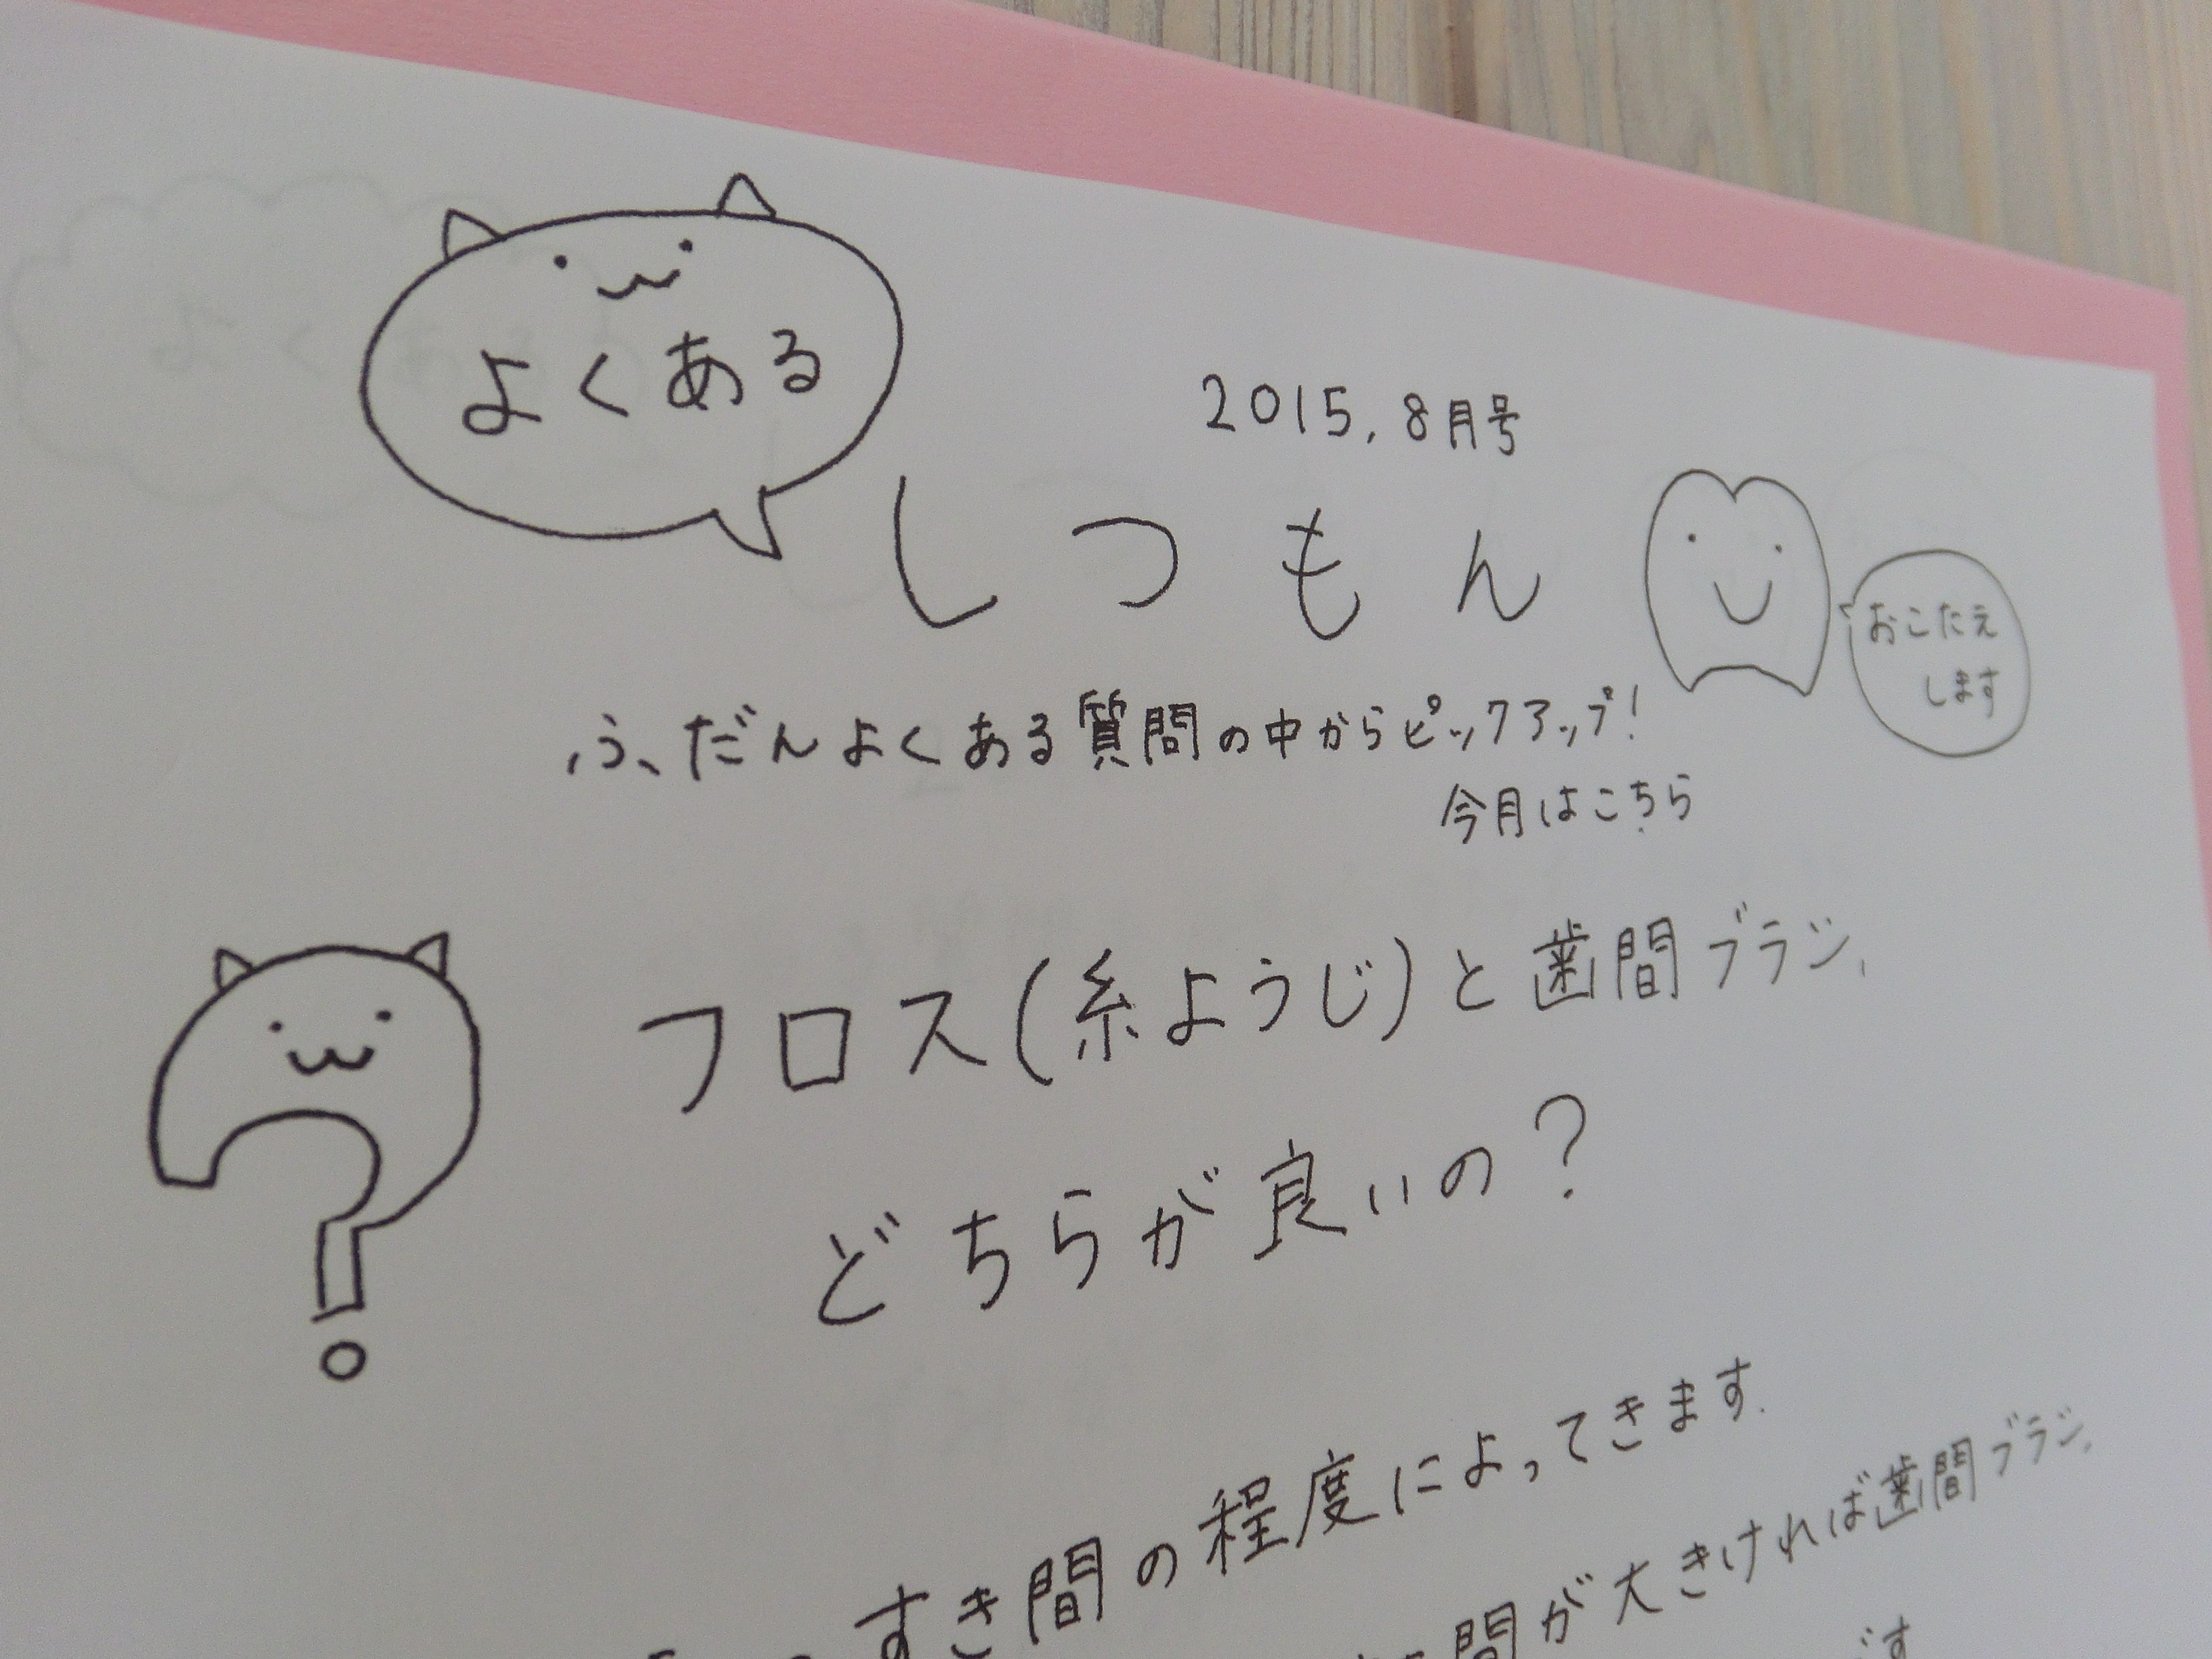 よくある
2015.8月号
しつもん
おこたえ
します
ふだんよくある質問の中からピックアップ!
今月はこちら
フロス(糸ようじ)と歯間ブラシ、
どちらが良いの?
すき間の程度によってきます.
間が大きければ歯間ブラシ、
です